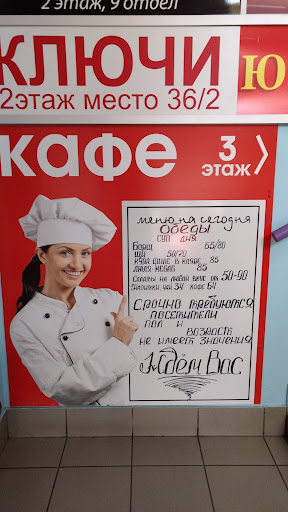 2 этаж, 9 отдел
КЛЮЧИ
Ю
2этаж место 36/2
кафе
3
этаж
меню на сегодня
обеды
суп дня
Борщ 65/80
щи 50/70
кура филе в кляре 85
люля-кебаб 85
Салаты на любой вкус от 50-00
Напитки, чай 34 кофе 60
Срочно требуются
посетители
пол и
возраст
не имеет значения
Ждём Вас